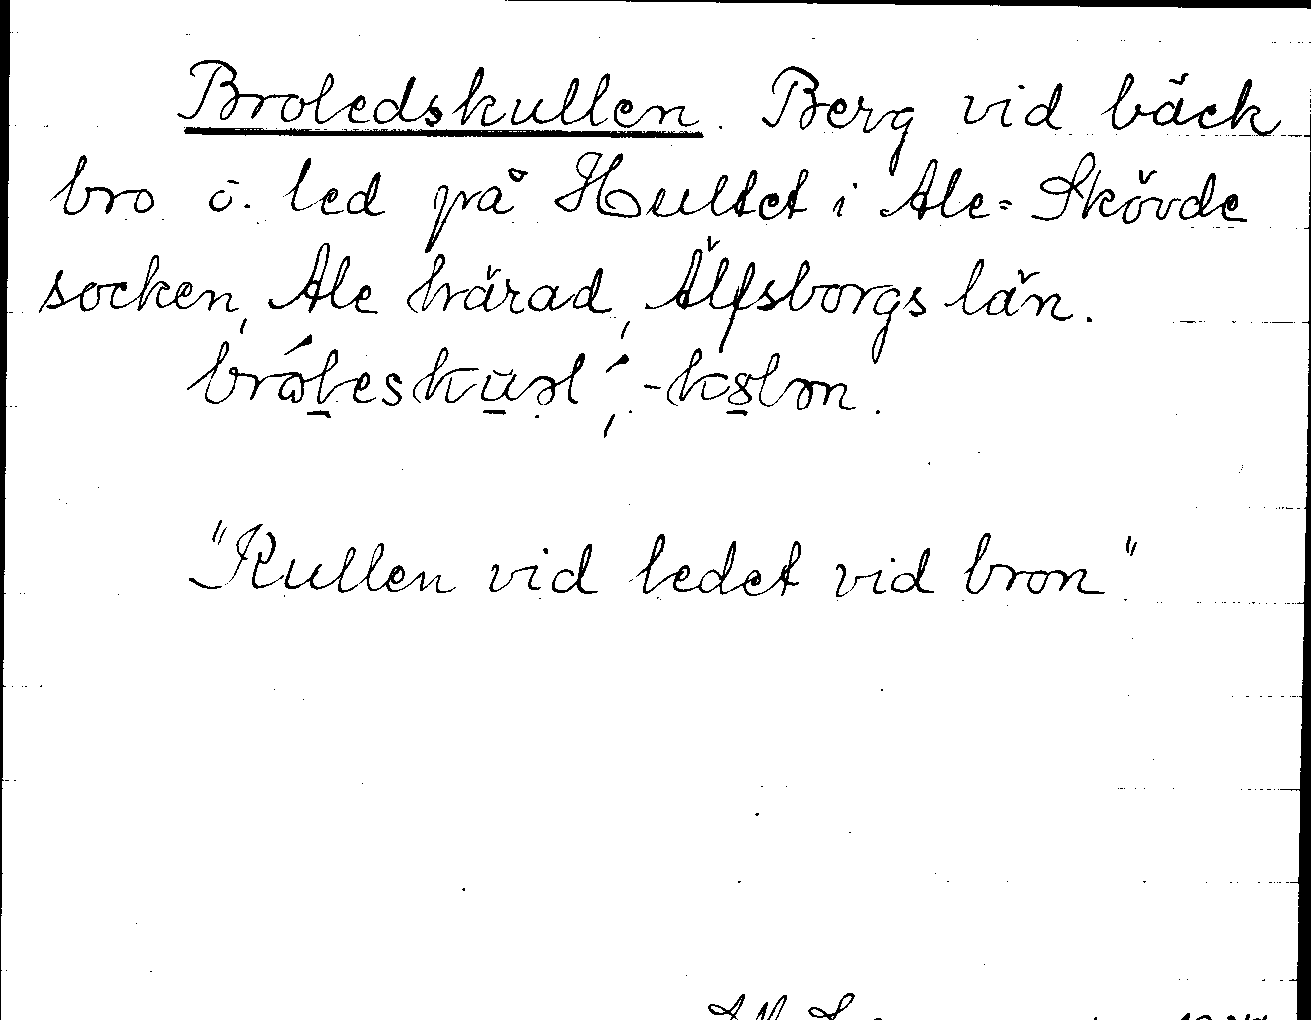 Broledskullen. Berg vid bäck
bro o. led på Hultet i Ale-Skövde
socken, Ale härad, Älfsborgs län.
"Kullen vid ledet vid bron"